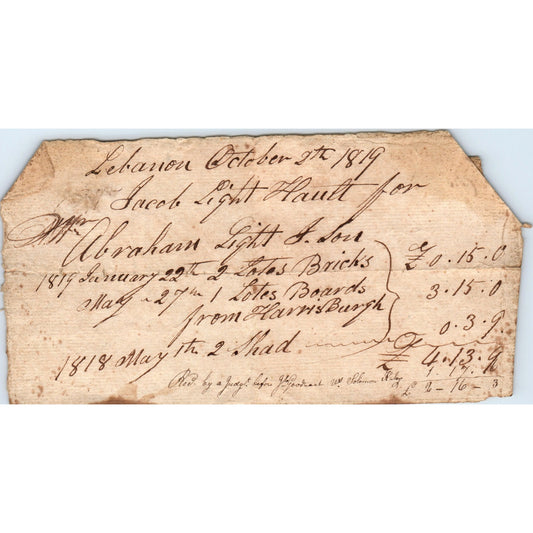 Lebanon October 9th 1819
Jacob Light Hault for
Mr
Abraham Light J. Son
1819 January 22th 2 Lotes Bricks £ 0.15.0
May 27th 1 Lotes Boards 3.15.0
from HarrisBurgh
0.3.9
1818 May 1th 2 Shad £ 4.13.9
1.17.6
Recd by a Judgt before Jn Goodhart £ 2-16-3